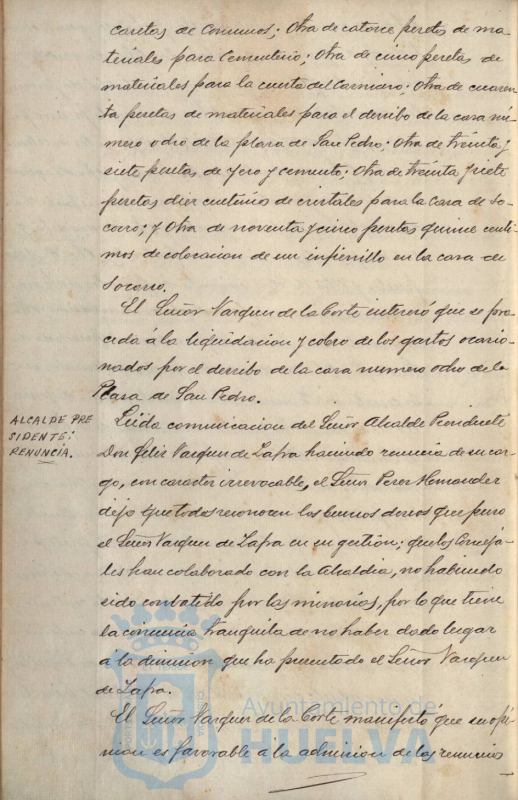 caretas de Consumos; Otra de catorce pesetas de ma-
teriales para Cementerio; Otra de cinco pesetas de
materiales para la cuesta del Carnicero; Otra de cuaren-
ta pesetas de materiales para el derribo de la casa nú-
mero ocho de la plaza de San Pedro; Otra de treinta y
siete pesetas de yeso y cemento; Otra de treinta y siete
pesetas diez centimos de cristales para la casa de So-
corro; y Otra de noventa y cinco pesetas quince centi-
mos de colocacion de un infiernillo en la casa de
Socorro.
El Señor Vazquez de la Corte interesó que se pro-
ceda á la liquidacion y cobro de los gastos ocasio-
nados por el derribo de la casa numero ocho de la
Plaza de San Pedro.
ALCALDE PRE
SIDENTE:
RENUNCIA.
Leida comunicacion del Señor Alcalde Presidente
Don Felix Vazquez de Zafra haciendo renuncia de su car-
go, con caracter irrevocable, el Señor Perez Hernandez
dijo que todos reconocen los buenos deseos que puso
el Señor Vazquez de Zafra en su gestion; que los Conceja-
les han colaborado con la Alcaldia, no habiendo
sido combatido por las minorias, por lo que tiene
la conciencia tranquila de no haber dado lugar
á la dimision que ha presentado el Señor Vazquez
de Zafra.
El Señor Vazquez de la Corte manifestó que su opi-
nion es favorable á la admision de las renuncias
Ayuntamiento de
HUELVA